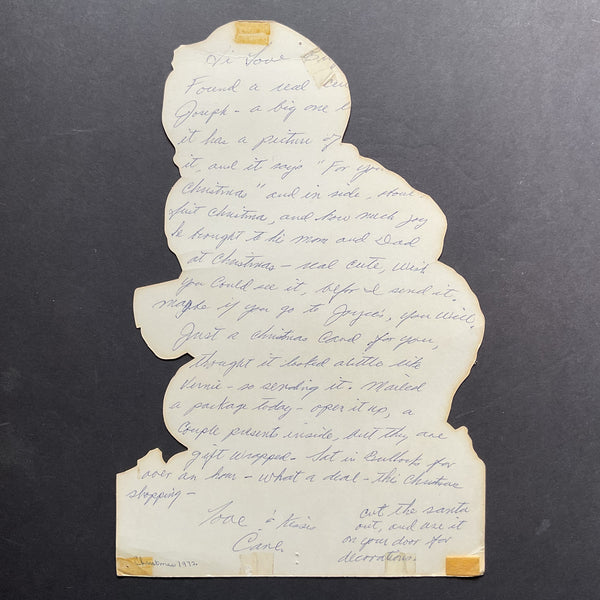 Hi Love
Found a real
Joseph - a big one
it has a picture of
it, and it says "For you
Christmas" and in side,
first Christmas, and how much joy
he brought to his mom and Dad
at Christmas - real cute, Wish
you could see it, befor I send it.
maybe if you go to Joyce's, you will.
Just a Christmas Card for you,
thought it looked alittle like
Vernie - so sending it. Mailed
a package today - open it up, a
couple presents inside, but they are
gift wrapped - Sat in Bullocks for
over an hour - what a deal - this Christmas
shopping -
Love & Kisses
cut the santa
out, and use it
on your door for
decorations.
Christmas 1972